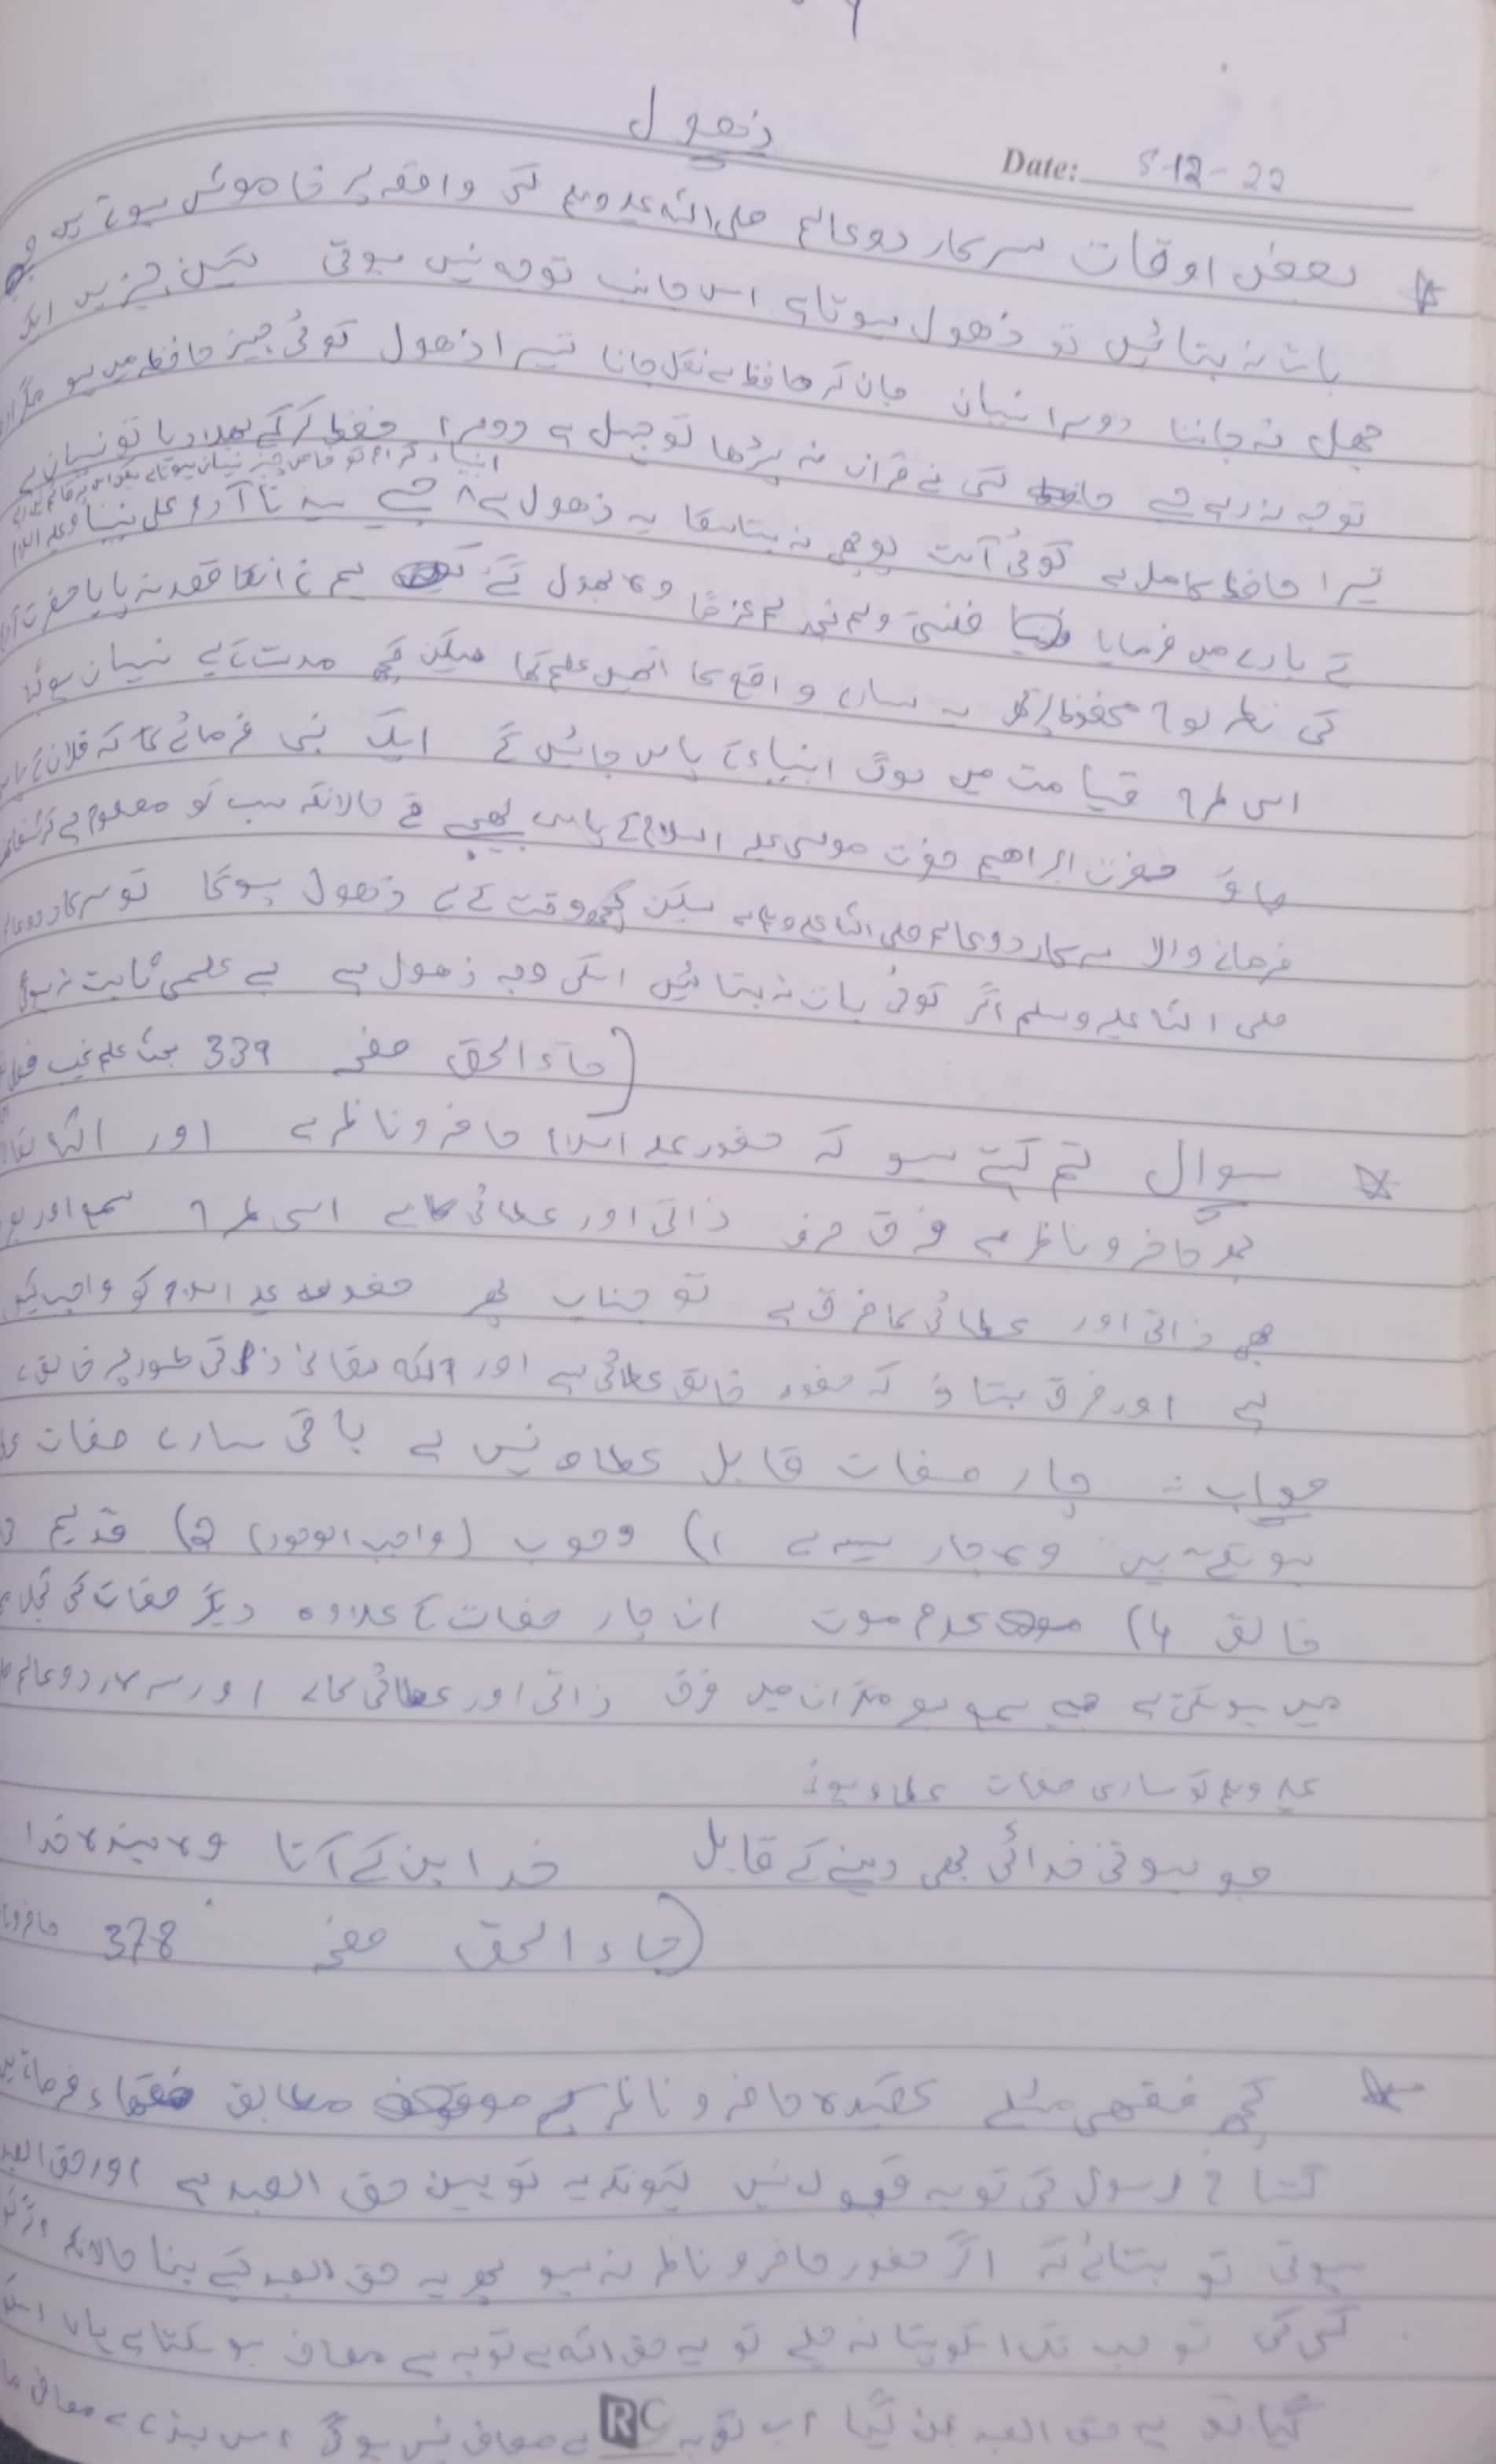 ذھول
Date: 5-12-22
بعض اوقات سرکار دوعالم صلی اللہ علیہ وسلم کسی واقعہ پر خاموش ہوتے ہیں
بات نہ بتائیں تو ذھول ہوتا ہے اس جانب توجہ نہیں ہوتی تین چیزیں ایک
جھل نہ جاننا دوسرا نسیان جان کر حافظہ سے نکل جانا تیسرا ذھول کوئی چیز حافظہ میں ہو مگر
توجہ نہ رہے جیسے کسی نے قرآن نہ پڑھا تو جہل ہے دوسرا حفظ کر کے بھلا دیا تو نسیان ہے
تیسرا حافظ کامل ہے کوئی آیت پوچھی نہ بتا سکا یہ ذھول ہے جیسے سیدنا آدم علی نبینا
کے بارے میں فرمایا فنسی ولم نجد لہ عزما وہ بھول گئے ہم نے انکا قصد نہ پایا حضرت
کی نظر لوح محفوظ پر یہ سارے واقع کا انہیں علم تھا لیکن کچھ مدت کے لیے نسیان ہو گیا
اسی طرح قیامت میں لوگ انبیاء کے پاس جائیں گے ایک نبی فرمائے گا کہ فلاں کے پاس
جاؤ حضرت ابراھیم حضرت موسی علیہ السلام کے پاس بھیجے گے حالانکہ سب کو معلوم ہے کہ
فرمانے والا سرکار دوعالم صلی اللہ علیہ وسلم ہے لیکن کچھ وقت کے لئے ذھول ہوگا تو سرکار دوعالم
صلی اللہ علیہ وسلم اگر کوئی بات نہ بتائیں اسکی وجہ ذھول ہے بے علمی ثابت نہ ہوگی
(جاء الحق صفحہ 339 بحث علم غیب
سوال تم کہتے ہو کہ حضور علیہ السلام حاضر و ناظر ہے اور اللہ
حاضر و ناظر ہے فرق صرف ذاتی اور عطائی کا ہے اسی طرح سمع اور
بھی ذاتی اور عطائی کا فرق ہے تو جناب پھر حضور علیہ السلام کو واجب
ہے اور فرق بتاؤ کہ حضور خالق عطائی ہے اور اللہ تعالی ذاتی طور پر خالق
جواب :- چار صفات قابل عطاء نہیں ہے باقی سارے صفات
ہو سکتے ہیں وہ چار یہ ہے 1) وجوب (واجب الوجود) 2) قدیم
خالق 4) عدم موت ان چار صفات کے علاوہ دیگر صفات کی
میں ہو سکتی ہے جیسے سمع بصر مگر ان میں فرق ذاتی اور عطائی کا ہے اور سرکار دوعالم
علیہ وسلم کو ساری صفات عطاء ہوئے
جو ہوتی خدائی بھی دینے کے قابل خدا بن کے آتا وہ بندہ خدا
(جاء الحق صفحہ 378
کچھ فقھی مسئلے عقیدہ حاضر و ناظر کے مطابق فقھاء فرماتے ہیں
گستاخ رسول کی توبہ قبول نہیں کیونکہ یہ توہین حق العبد ہے اور حق العبد
ہوتی تو بتائے کہ اگر حضور حاضر و ناظر نہ ہو پھر یہ حق العبد کیسے بنا حالانکہ
کسی کی تو جب تک اسکو پتا نہ چلے تو یہ حق اللہ ہے توبہ سے معاف ہو سکتا ہے ہاں
گیا تو یہ حق العبد بن گیا اب توبہ سے معاف نہیں ہوگی اس بندے سے معافی
RC